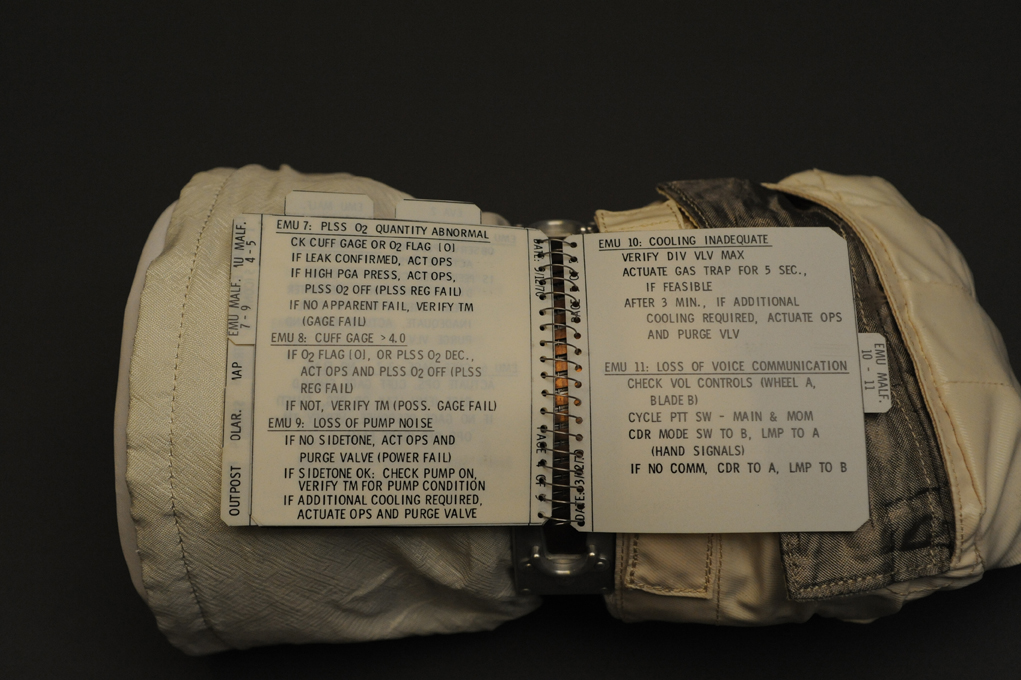 EMU 7: PLSS O2 QUANTITY ABNORMAL
CK CUFF GAGE OR O2 FLAG |O|
IF LEAK CONFIRMED, ACT OPS
IF HIGH PGA PRESS, ACT OPS,
PLSS O2 OFF (PLSS REG FAIL)
IF NO APPARENT FAIL, VERIFY TM
(GAGE FAIL)
EMU 8: CUFF GAGE >4.0
IF O2 FLAG |O|, OR PLSS O2 DEC.,
ACT OPS AND PLSS O2 OFF (PLSS
REG FAIL)
IF NOT, VERIFY TM (POSS. GAGE FAIL)
EMU 9: LOSS OF PUMP NOISE
IF NO SIDETONE, ACT OPS AND
PURGE VALVE (POWER FAIL)
IF SIDETONE OK: CHECK PUMP ON,
VERIFY TM FOR PUMP CONDITION
IF ADDITIONAL COOLING REQUIRED,
ACTUATE OPS AND PURGE VALVE
OUTPOST
DLAR.
1AP
EMU MALF.
7 - 9
1U MALF.
4 - 5
DATE:
PAGE
OF
EMU 10: COOLING INADEQUATE
VERIFY DIV VLV MAX
ACTUATE GAS TRAP FOR 5 SEC.,
IF FEASIBLE
AFTER 3 MIN., IF ADDITIONAL
COOLING REQUIRED, ACTUATE OPS
AND PURGE VLV
EMU 11: LOSS OF VOICE COMMUNICATION
CHECK VOL CONTROLS (WHEEL A,
BLADE B)
CYCLE PTT SW - MAIN & MOM
CDR MODE SW TO B, LMP TO A
(HAND SIGNALS)
IF NO COMM, CDR TO A, LMP TO B
EMU MALF.
10 - 11
DATE:
PAGE